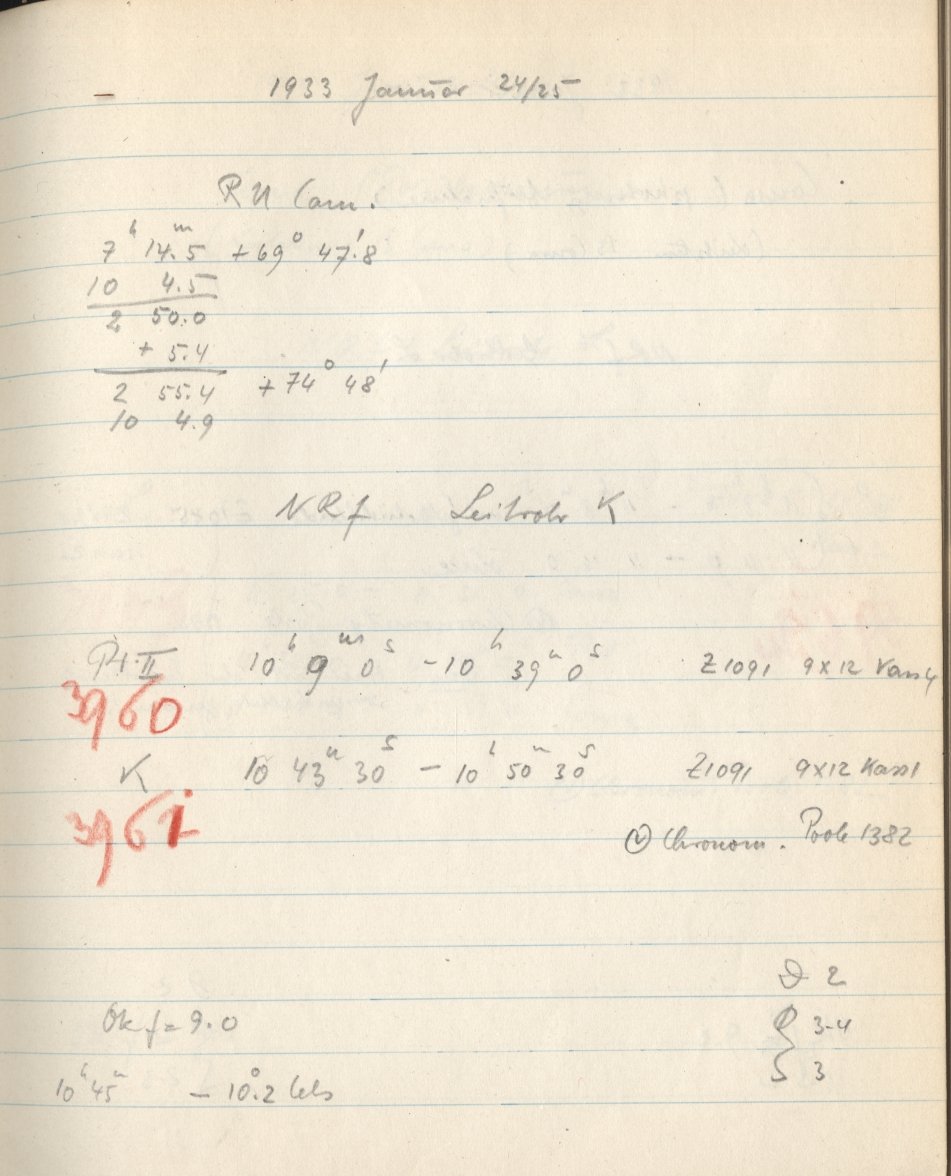 1933 Januar 24/25
RU Cam.
7ʰ 14ᵐ.5 +69° 47'.8
10 4.5
2 50.0
+ 5.4
2 55.4 +74° 48'
10 4.9
NRf Leitrohr K
Pt. II 10ʰ 9ᵐ 0ˢ - 10ʰ 39ᵐ 0ˢ Z1091 9x12 Kass 4
3960
K 10 43ᵐ 30ˢ - 10ʰ 50ᵐ 30ˢ Z1091 9x12 Kass 1
3961
Chronom. Poole 1382
D 2
Ok f = 9.0
3-4
S 3
10ʰ 45ᵐ - 10°.2 Cels